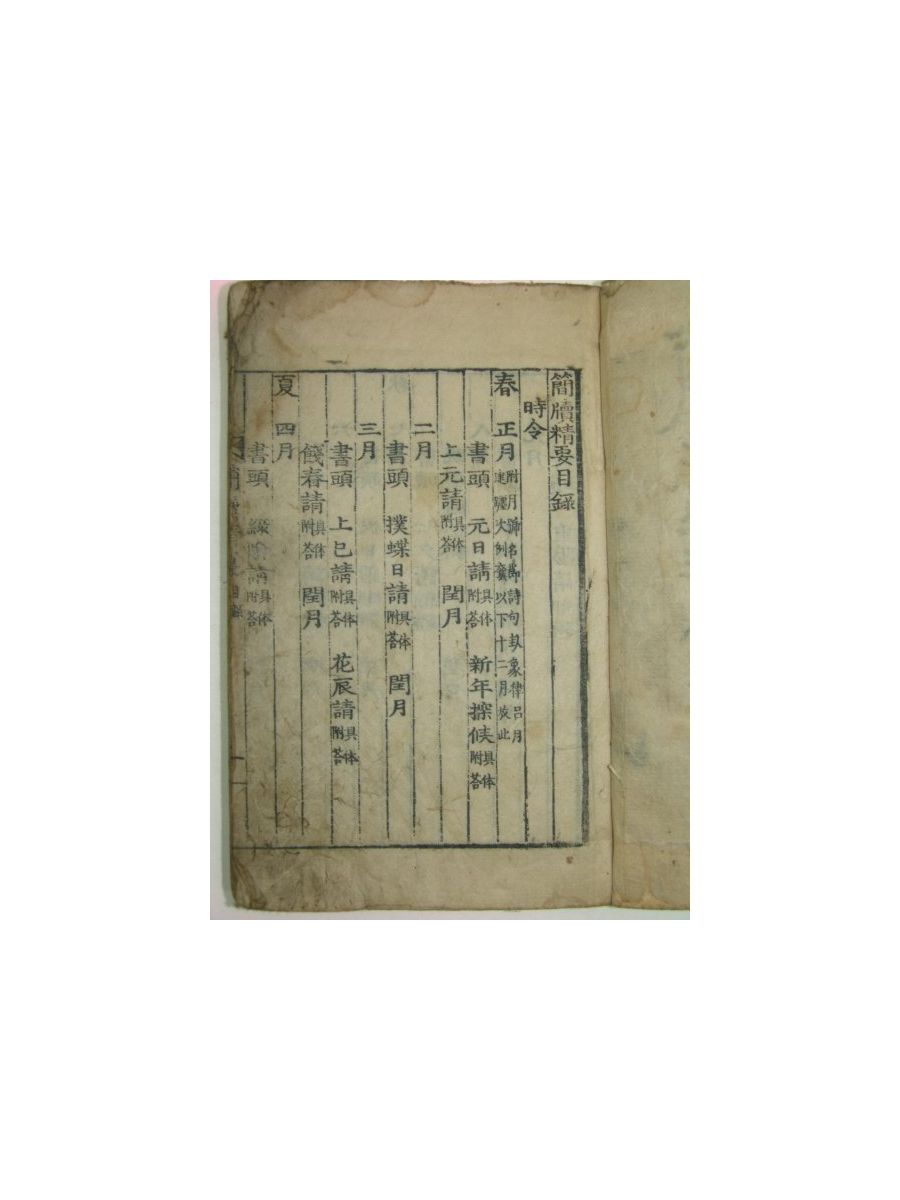 簡牘精要目録
時令
春 正月 附月號名卽詩句卦象律呂月建躔次 以下十二月 此
書頭 元日請 具体附答 新年探候 具体附答
上元請 具体附答 閏月
二月
書頭 撲蝶日請 具体附答 閏月
三月
書頭 上巳請 具体附答 花辰請 具体附答
餞春請 具体附答 閏月
夏 四月
書頭 請 具体附答